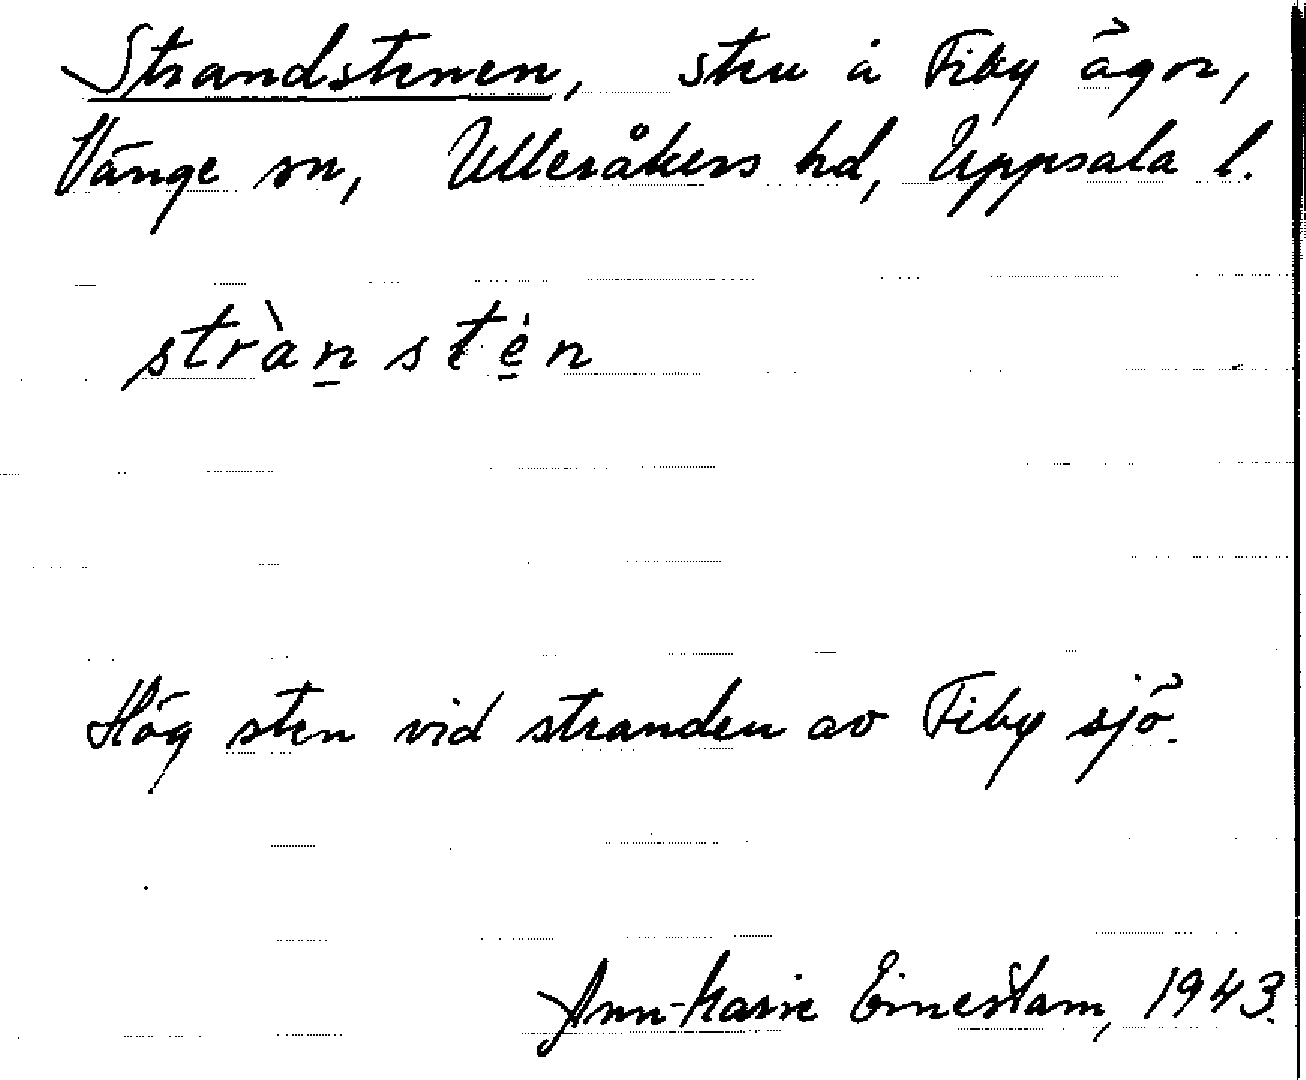 Strandstenen, sten å Fiby ägor,
Vänge sn, Ulleråkers hd, Uppsala l.
stràn̲ stė̲n
Hög sten vid stranden av Fiby sjö.
Ann-Marie Einestam, 1943.